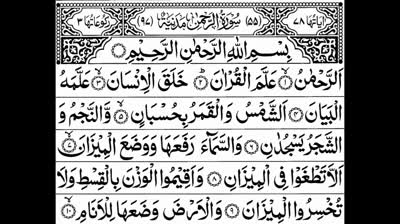 اٰيَاتُهَا ٧٨ (٥٥) سُوْرَةُ الرَّحْمٰنِ مَدَنِيَّةٌ (٩٧) رُكُوْعَاتُهَا ٣
بِسْمِ اللّٰهِ الرَّحْمٰنِ الرَّحِيْمِ
اَلرَّحْمٰنُ ۝١ عَلَّمَ الْقُرْاٰنَ ۝٢ خَلَقَ الْاِنْسَانَ ۝٣ عَلَّمَهُ
الْبَيَانَ ۝٤ اَلشَّمْسُ وَالْقَمَرُ بِحُسْبَانٍ ۝٥ وَّالنَّجْمُ وَ
الشَّجَرُ يَسْجُدٰنِ ۝٦ وَالسَّمَآءَ رَفَعَهَا وَوَضَعَ الْمِيْزَانَ ۝٧
اَلَّا تَطْغَوْا فِى الْمِيْزَانِ ۝٨ وَاَقِيْمُوا الْوَزْنَ بِالْقِسْطِ وَلَا
تُخْسِرُوا الْمِيْزَانَ ۝٩ وَالْاَرْضَ وَضَعَهَا لِلْاَنَامِ ۝١٠